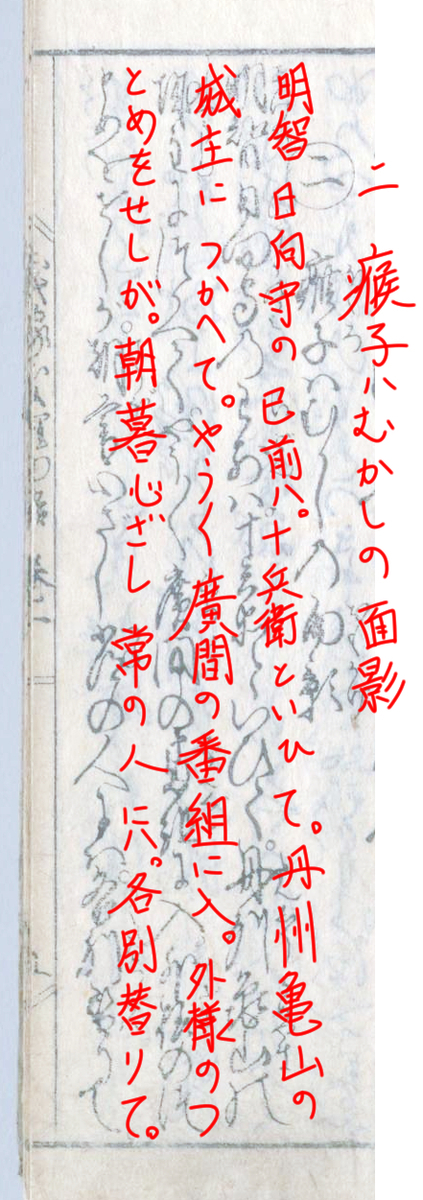 二 瘊子ハむかしの面影
明智日向守の已前八。十兵衛といひて。丹州亀山の
城主につかへて。やうく廣間の番組に入。外様のつ
とめをせしが。朝暮心ざし常の人に八。各別替りて。